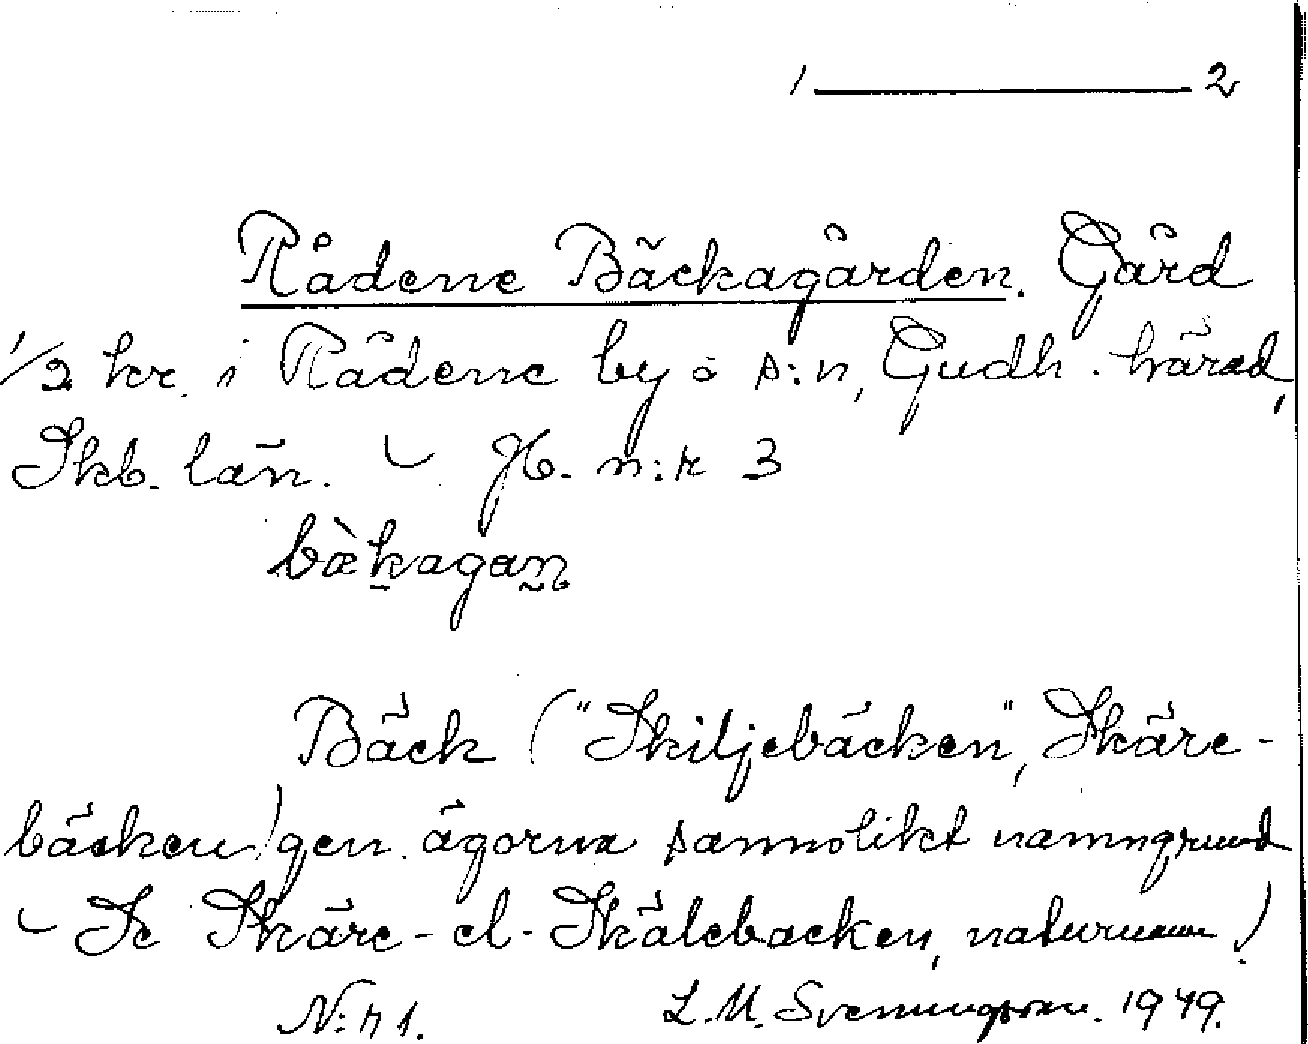 1 ——— 2
Rådene Bäckagården. Gård
1/2 hr. i Rådene by o s:n, Gudh. härad,
Skb. län. ‿ Jb. n:r 3
bæ̀kagaṉ
Bäck ("Skiljebäcken", Skäre-
bäcken) gen. ägorna sannolikt namngrund
‿ Se Skäre- el. Skälebacken, naturnamn!
N:r 1. L.M. Svenungsson. 1949.